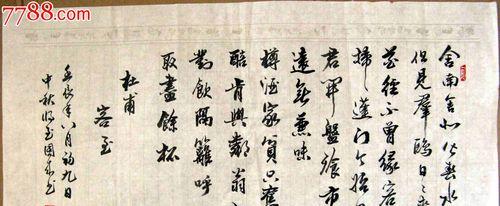 7788.com
舍南舍北皆春水
但見羣鷗日々
花徑不曾緣客
掃蓬門今始
君開盤飧市
遠無兼味
樽酒家貧只舊
醅肯與鄰翁
對飲隔籬呼
取盡餘杯
杜甫
客至
壬辰年八月初九日
中秋將至國